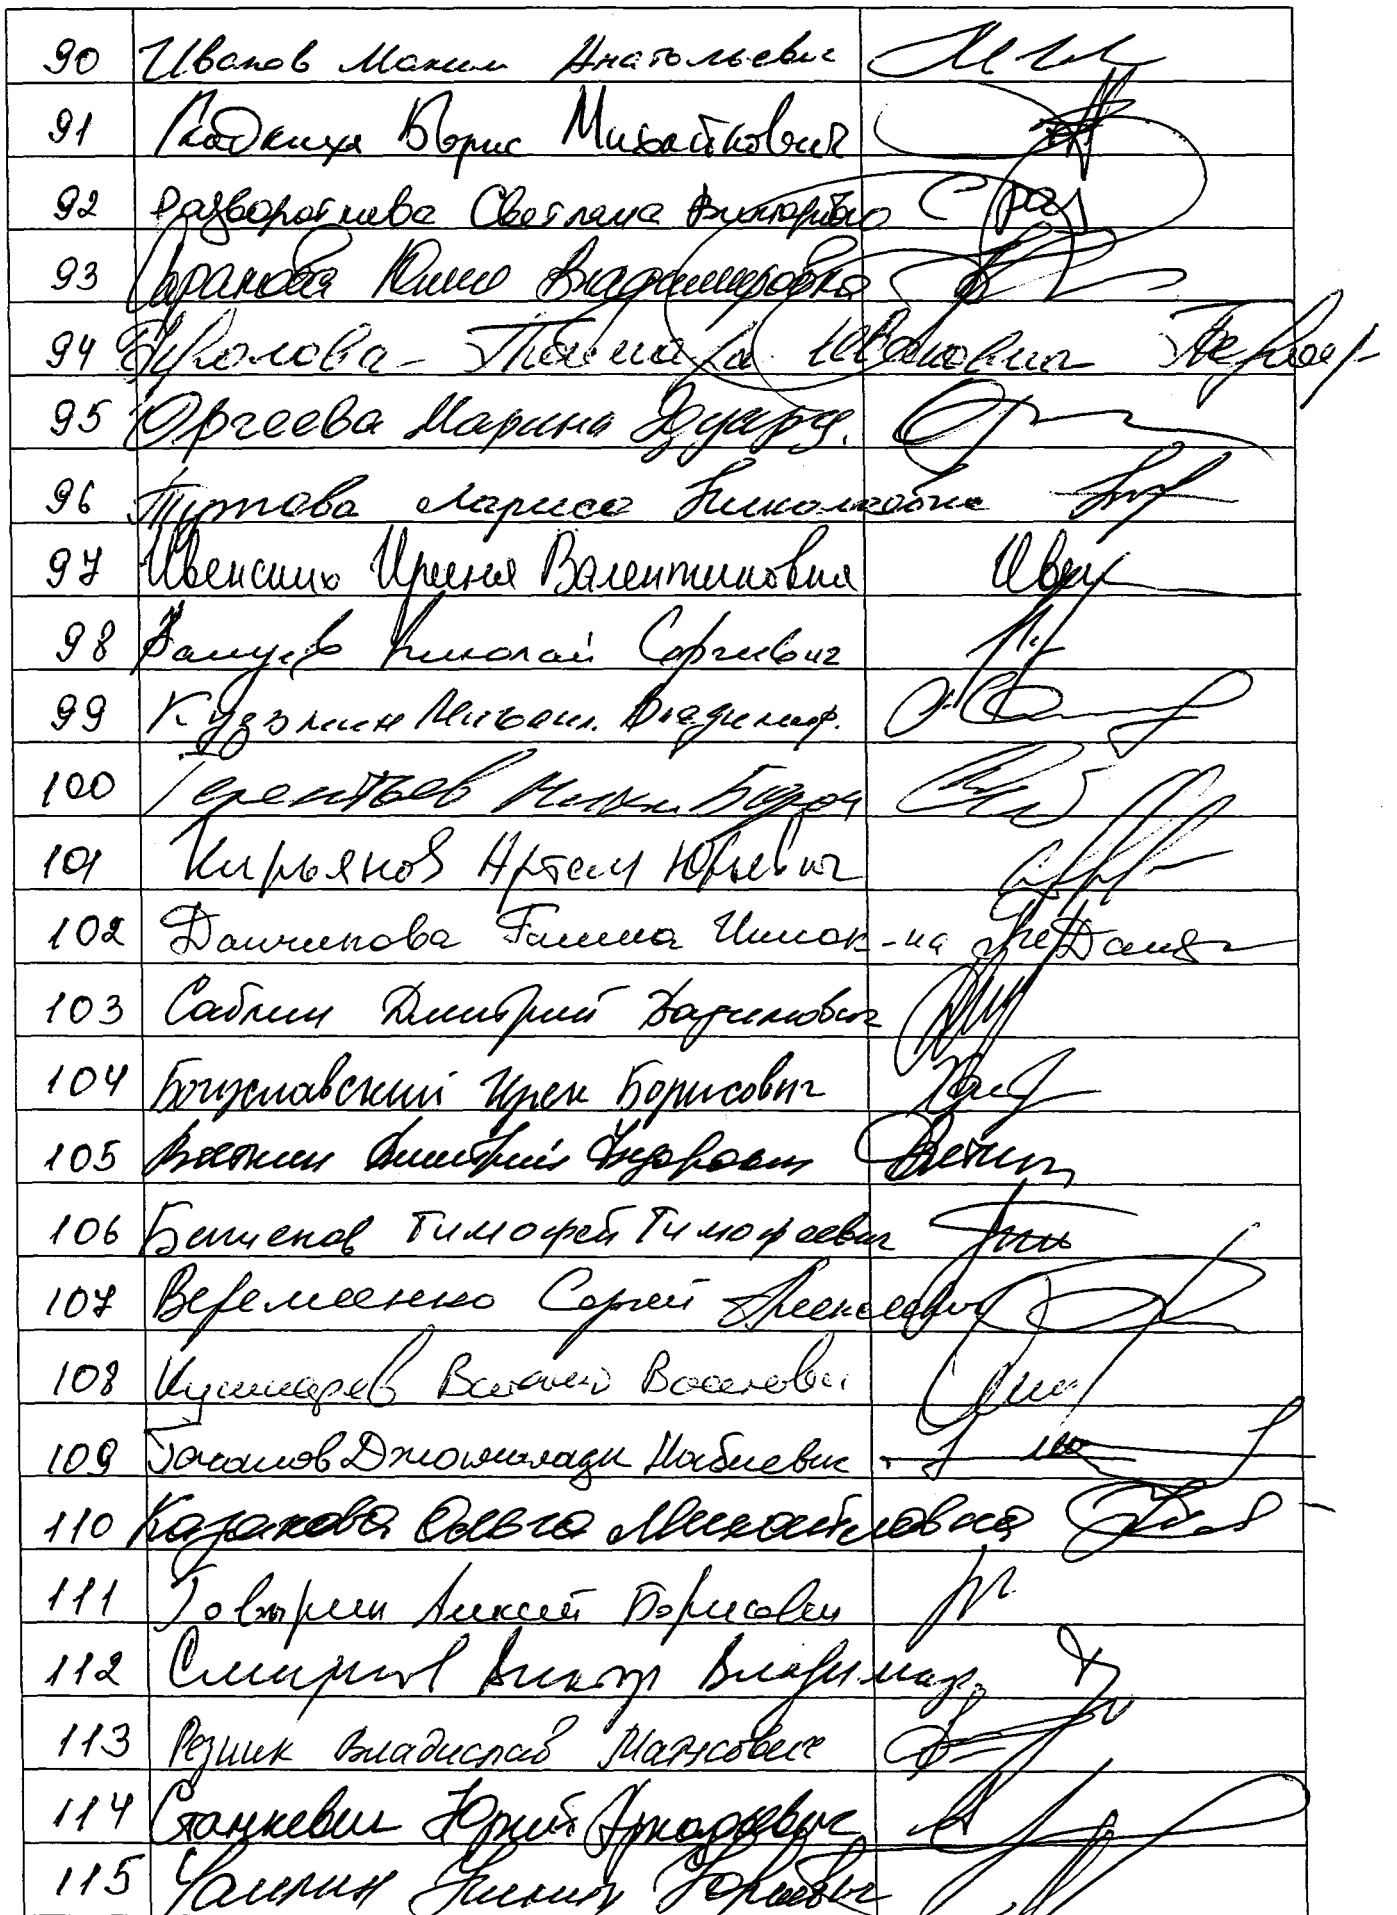 90 Иванов Максим Анатольевич
91 Гладких Борис Михайлович
92 Разворотнева Светлана Викторовна С Раз
93 Юлия Владимировна
94 Фролова Тамара Ивановна
95 Оргеева Марина Эдуард.
96 Тутова Лариса Николаевна
97 Ивенских Ирина Валентиновна Ивен
98 Николай Сергеевич
99 Кузьмин Михаил Владимир.
100 Терентьев
101 Кирьянов Артем Юрьевич
102 Данчикова Галина Иннок-на
103 Саблин Дмитрий Вадимович
104 Богуславский Ирек Борисович
105 Вяткин Дмитрий Федорович Вяткин
106 Баженов Тимофей Тимофеевич
107 Веремеенко Сергей Алексеевич
108 Кушнарев
109 Гасанов Джамаладин Набиевич
110 Казакова Ольга Михайловна
111 Говырин Алексей Борисович
112 Смирнов Виктор Владимир.
113 Резник Владислав Матусович
114 Станкевич Юрий Аркадьевич
115 Чаплин Никита Юрьевич